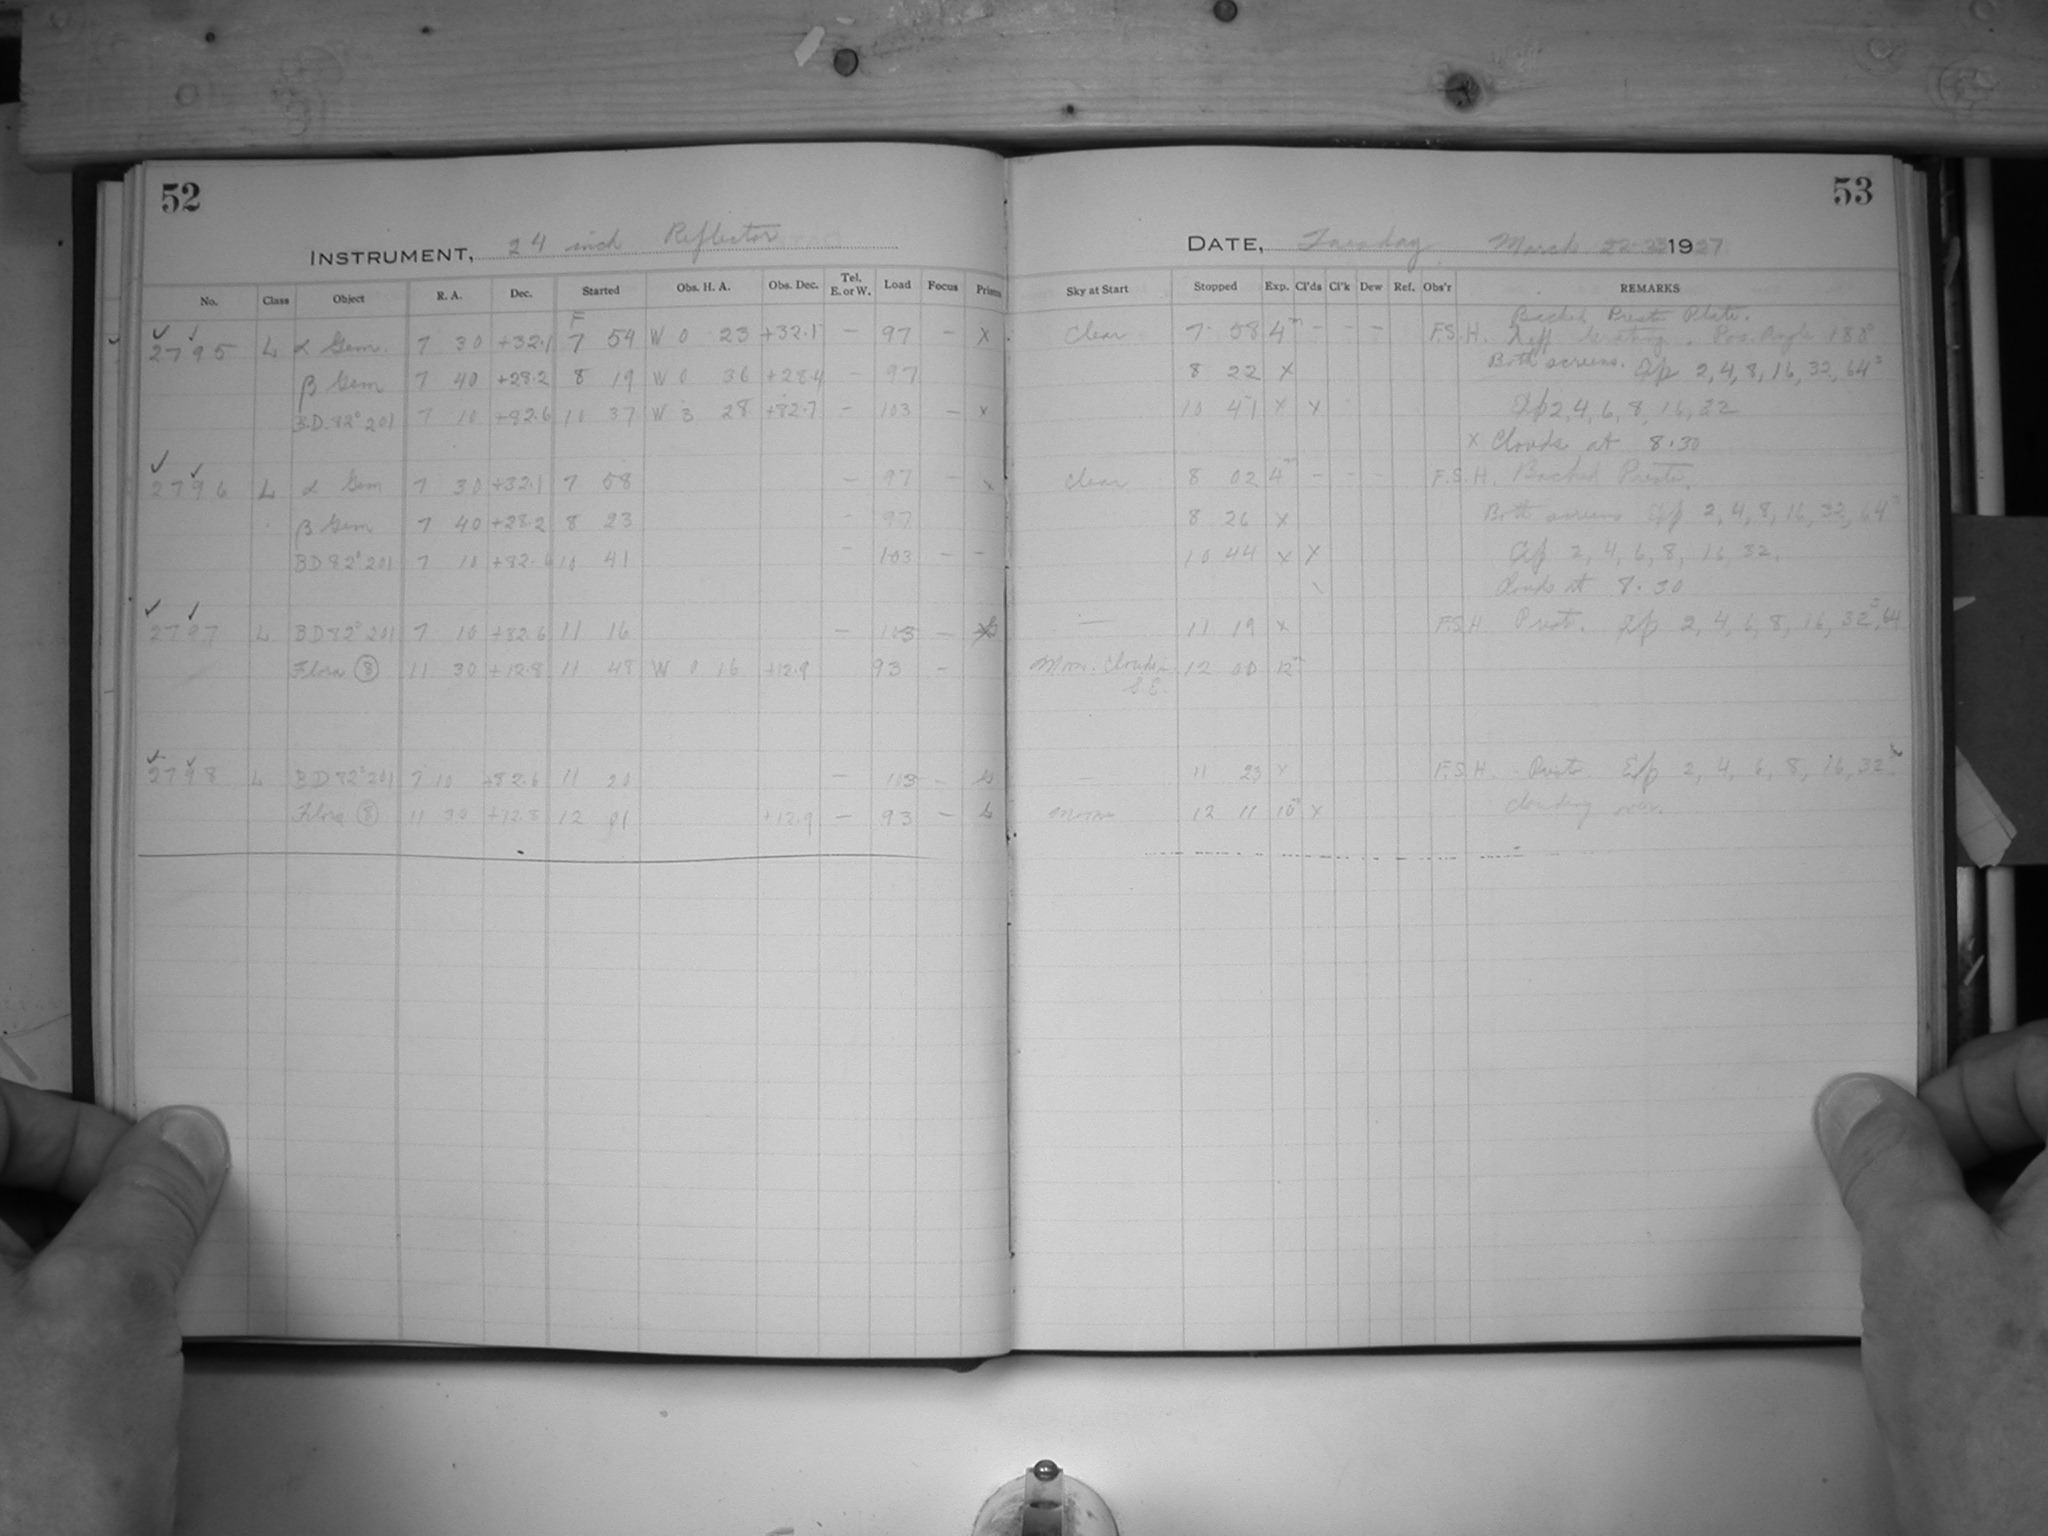 52
INSTRUMENT, 24 inch Reflector
No. Class Object R. A. Dec. Started Obs. H. A. Obs. Dec. Tel. E. or W. Load Focus Prism
F
2795 L α Gem. 7 30 +32.1 7 54 W 0 23 +32.1 — 97 — X
β Gem 7 40 +28.2 8 19 W 0 36 +28.4 — 97
B.D. 82° 201 7 10 +82.6 10 37 W 3 28 +82.7 — 103 — x
2796 L α Gem 7 30 +32.1 7 58 — 97 — x
β Gem 7 40 +28.2 8 23 — 97
BD 82° 201 7 10 +82.6 10 41 — 103 — —
2797 L BD 82° 201 7 10 +82.6 11 16 — 103 —
Flora ⑧ 11 30 +12.8 11 48 W 0 16 +12.9 93 —
2798 L BD 82° 201 7 10 +82.6 11 20 — 103 —
Flora ⑧ 11 30 +12.8 12 01 +12.9 — 93 —
53
DATE, Tuesday March 22-23 1927
Sky at Start Stopped Exp. Cl'ds Cl'k Dew Ref. Obs'r REMARKS
Backed Presto Plate.
Clear 7 58 4m — — — F.S.H. Grating. Pos. Angle 188°
8 22 x Both screens. Exp 2, 4, 8, 16, 32, 64s
10 41 x x Exp 2, 4, 6, 8, 16, 32
x Clouds at 8.30
Clear 8 02 4m — — — F.S.H. Backed Presto.
8 26 x Both screens Exp 2, 4, 8, 16, 32, 64s
10 44 x x Exp 2, 4, 6, 8, 16, 32.
Clouds at 8.30
— 11 19 x F.S.H. Presto. Exp 2, 4, 6, 8, 16, 32s, 64
Moon. Clouds in S.E. 12 00 12m
— 11 23 x F.S.H. Presto. Exp 2, 4, 6, 8, 16, 32s
Moon 12 11 10m x Clouding over.